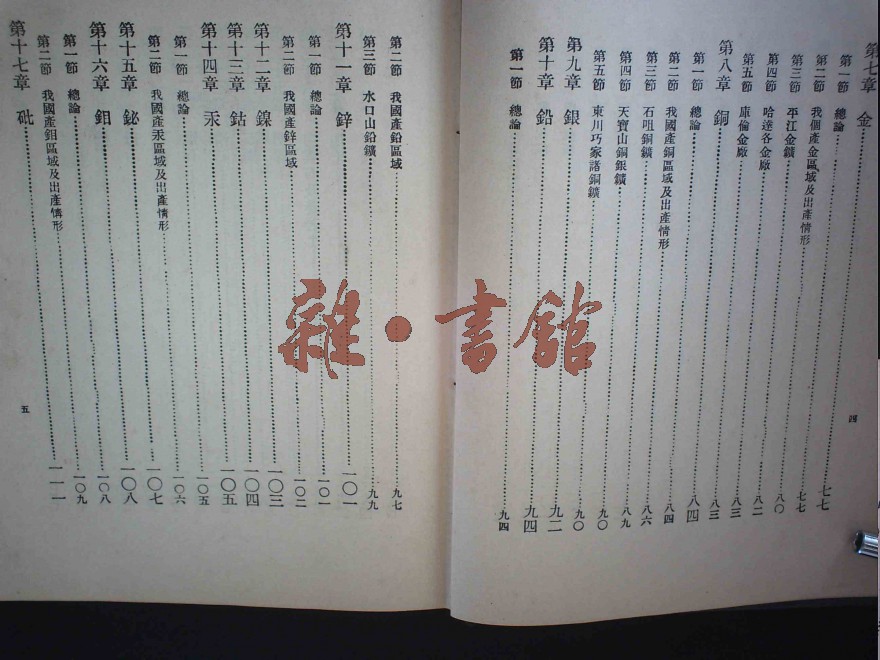 第七章 金……七七
第一節 總論……七七
第二節 我個產金區域及出產情形……八〇
第三節 平江金鑛……八二
第四節 哈達各金廠……八三
第五節 庫倫金廠……八三
第八章 銅……八四
第一節 總論……八四
第二節 我國產銅區域及出產情形……八六
第三節 石咀銅鑛……八九
第四節 天寶山銅銀鑛……九〇
第五節 東川巧家諸銅鑛……九〇
第九章 銀……九二
第十章 鉛……九四
第一節 總論……九四
四
第二節 我國產鉛區域……九七
第三節 水口山鉛鑛……九九
第十一章 鋅……一〇一
第一節 總論……一〇一
第二節 我國產鋅區域……一〇二
第十二章 鎳……一〇三
第十三章 鈷……一〇四
第十四章 汞……一〇五
第一節 總論……一〇五
第二節 我國產汞區域及出產情形……一〇六
第十五章 鉍……一〇七
第十六章 鉬……一〇八
第一節 總論……一〇八
第二節 我國產鉬區域及出產情形……一〇九
第十七章 砒……一一一
五
雜·書館